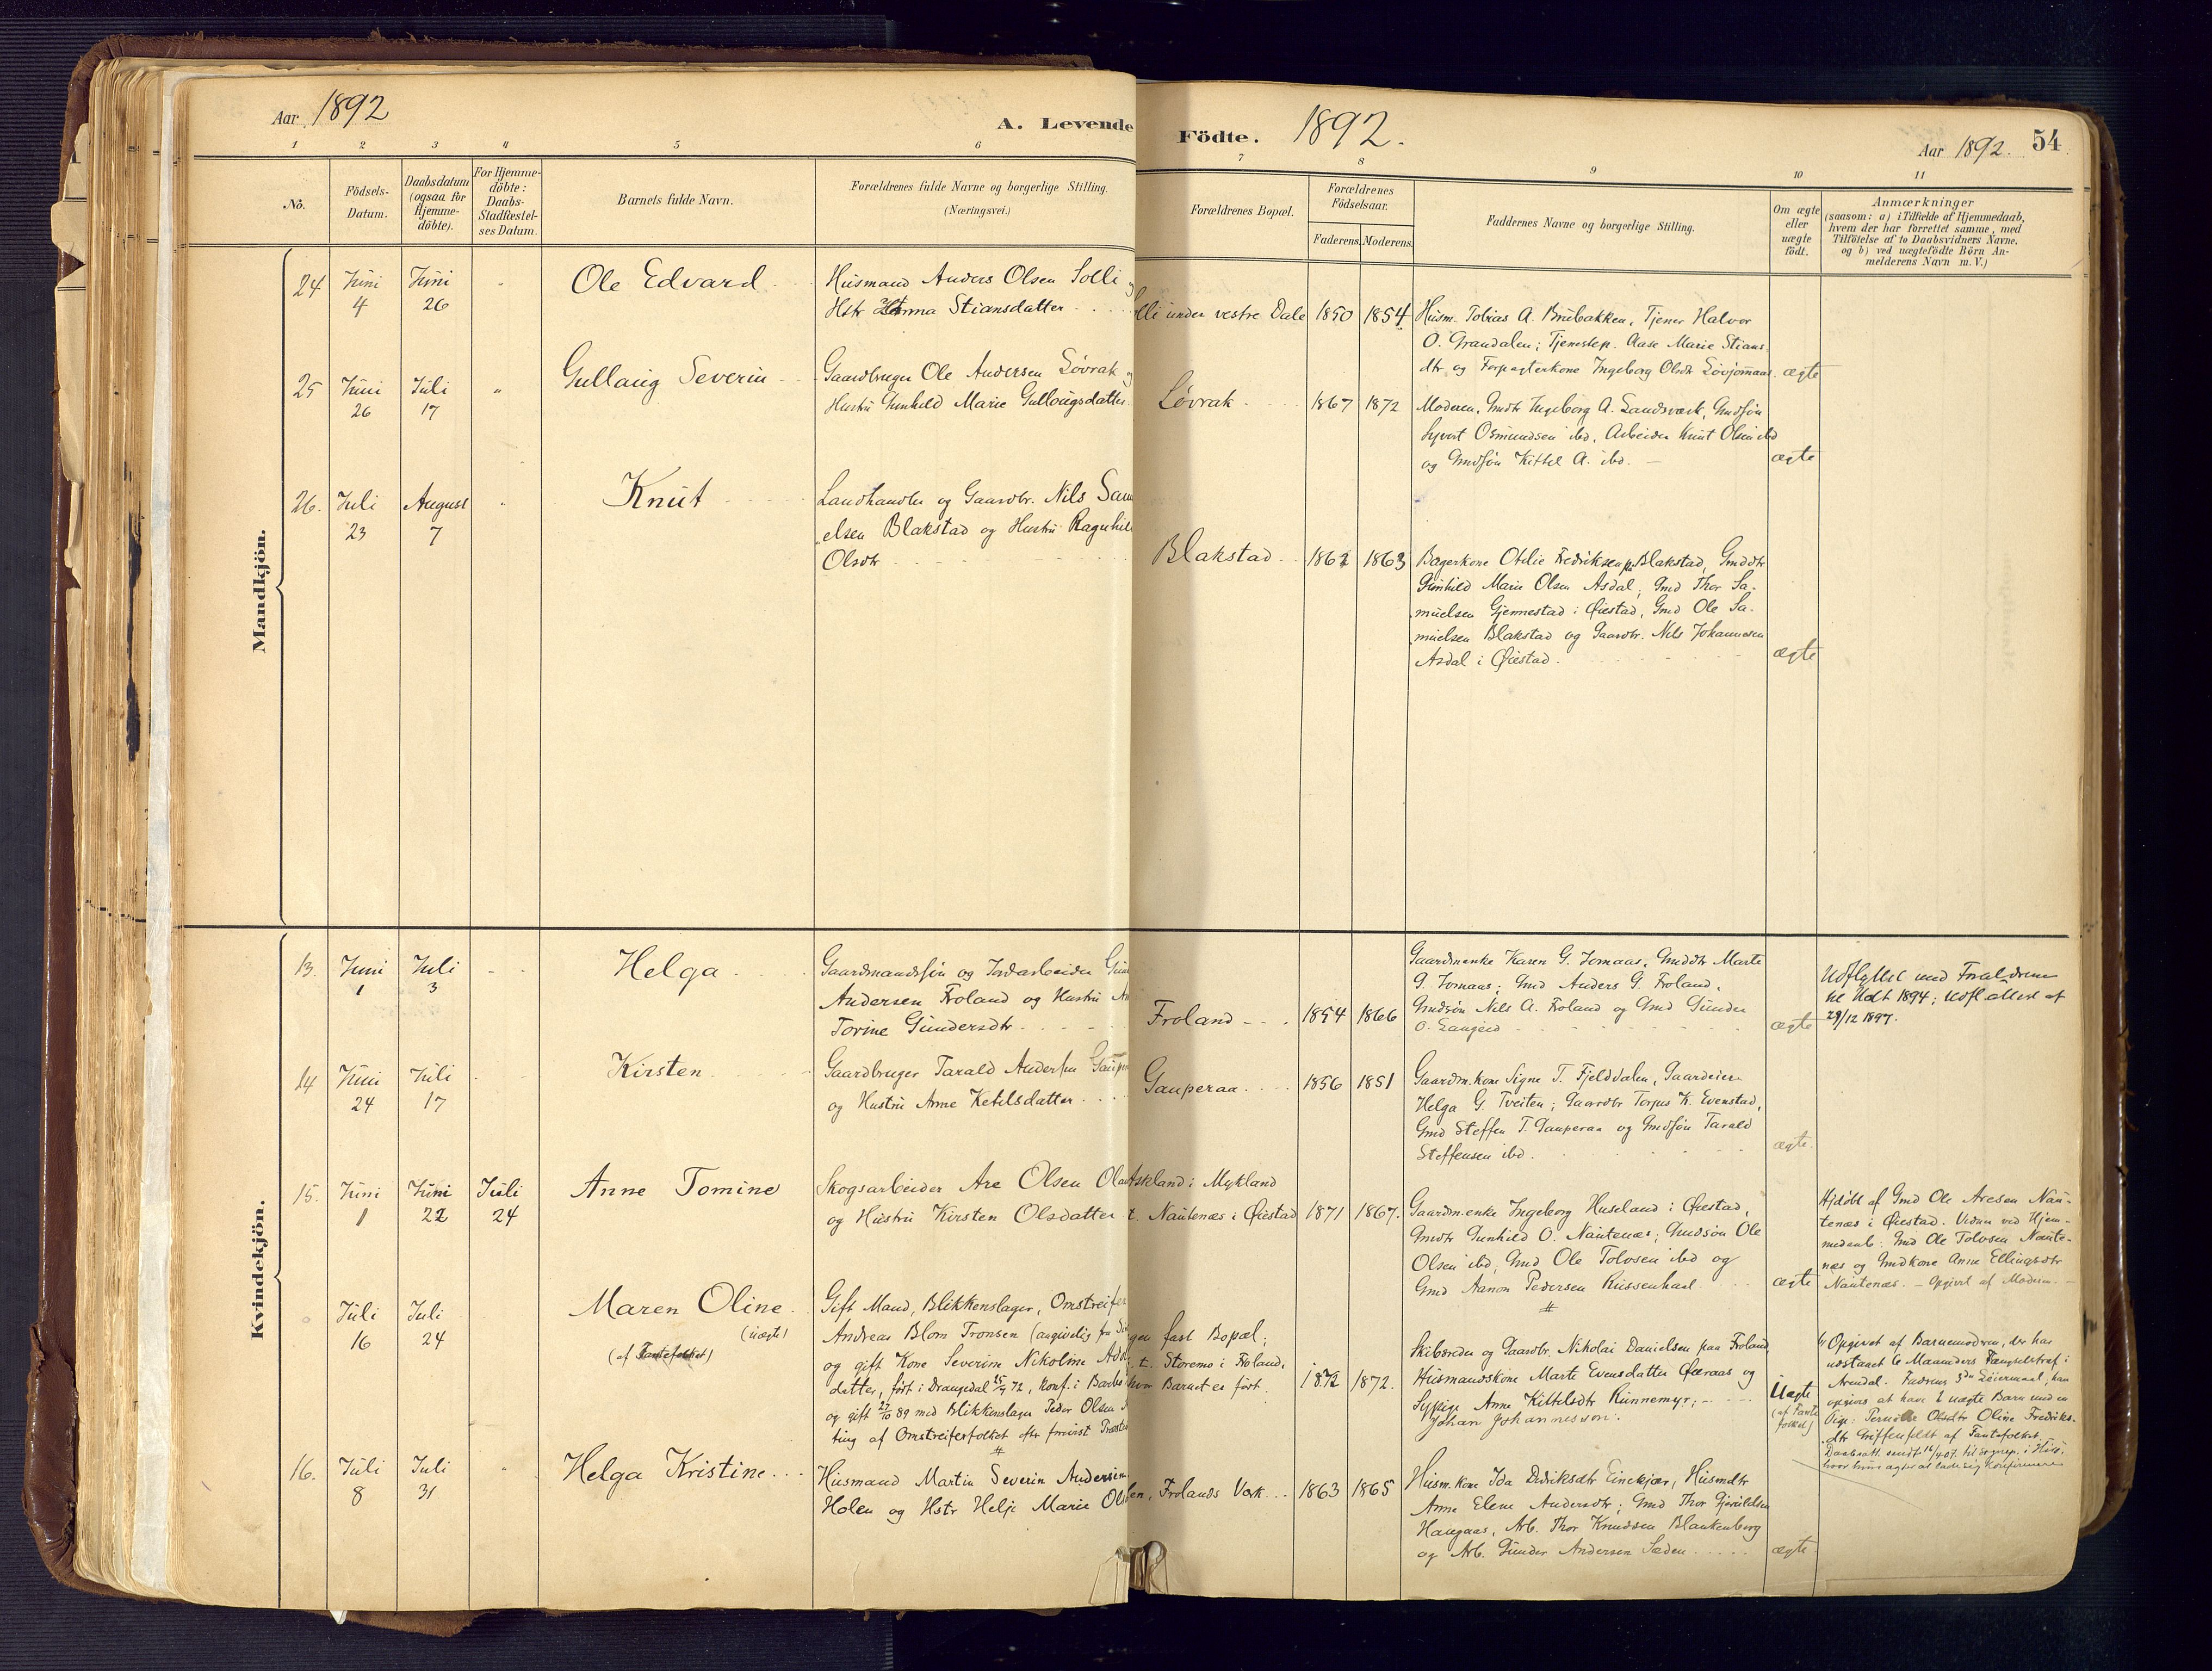 Aar 1892
A. Levende Födte. 1892.
Aar 1892. 54
1 2 3 4 5 6 7 8 9 10 11
No.
Födsels-
Datum.
Daabsdatum
(ogsaa for
Hjemme-
döbte).
For Hjemme-
döbte:
Daabs-
Stadfæstel-
ses Datum.
Barnets fulde Navn.
Forældrenes fulde Navne og borgerlige Stilling.
(Næringsvei.)
Forældrenes Bopæl.
Forældrenes
Födselsaar.
Faderens. Moderens.
Faddernes Navne og borgerlige Stilling.
Om ægte
eller
uægte
födt.
Anmærkninger
(saasom: a) i Tilfælde af Hjemmedaab,
hvem der har forrettet samme, med
Tilföielse af to Daabsvidners Navne,
og b) ved uægtefödte Börn An-
melderens Navn m. V.)
Mandkjön.
24 Juni 4
Juni 26
Ole Edvard
Husmand Anders Olsen Solli
Hstr Anna Stiansdatter
under vestre Dale
1850 1854
Husm. Tobias A. Brubakken, Tjener Halvor
O. Grandalen; Tjenestep. Aase Marie Stians
dtr og Forpagterkone Ingeborg Olsdtr Løvjomaas
ægte
25 Juni 26
Juli 17
Gullaug Severin
Gaardbruger Ole Andersen Løvrak
Hustru Gunhild Marie Gullougsdatter
Løvrak
1867 1872
Moderen, Gmdtr Ingeborg A. Landsværk, Gmdsøn
Syvert Osmundsen ibd, Arbeider Knut Olsen ibd
og Gmdsøn Kittel A. ibd.
ægte
26. Juli 23
August 7
Knut
Landhandler og Gaardbr. Nils Sam
elsen Blakstad og Hustru Ragnhil
Olsdtr
Blakstad
1862 1863
Bagerkone Otilie Fredriksen p. Blakstad, Gmddtr
Gunhild Marie Olsen Asdal, Gmd Thor Sa-
muelsen Gjennestad i Øiestad, Gmd Ole Sa-
muelsen Blakstad og Gaardbr. Nils Johannesen
Asdal i Øiestad.
ægte
Kvindekjön.
13. Juni 1
Juli 3
Helga
Gaardmandssøn og Jordarbeider Gun
Andersen Froland og Hustru
Torine Gundersdtr
Froland
1854 1866
Gaardmenke Karen G. Jomaas, Gmddtr Marte
G. Jomaas; Gmd Anders G. Froland,
Gmdsøn Nils A. Froland og Gmd Gunder
O. Langeid
ægte
Udflyttet med Forældrene
til Holt 1894; Udfl. attest af
29/12 1897.
14 Juni 24
Juli 17
Kirsten
Gaardbruger Tarald Andersen Gauper
og Hustru Anne Ketilsdatter
Gauperaa
1856 1851
Gaardm.kone Signe T. Fjelddalen, Gaardeier
Helga G. Tveiten; Gaardbr Torjus K. Evenstad,
Gmd Steffen T. Gauperaa og Gmdsøn Tarald
Steffensen ibd.
ægte.
15. Juni 1
Juni 22
Juli 24
Anne Tomine
Skogsarbeider Are Olsen
og Hustru Kirsten Olsdatter
Askland i Mykland
t. Nautenæs i Øiestad
1871 1867.
Gaardm.enke Ingeborg Huseland i Øiestad,
Gmdtr Gunhild O. Nautenæs; Gmdsøn Ole
Olsen ibd, Gmd Ole Tolvsen ibd og
Gmd Aanon Pedersen
ægte
Hjdøbt af Gmd Ole Aresen Nau-
tenæs i Øiestad. Vidner ved Hjem-
medaab: Gmd Ole Tolvsen Naute-
næs og Gmdkone Anne Ellingsdtr
Nautenæs. – Opgivet af Moderen. –
Juli 16
Juli 24
Maren Oline
(uægte)
(af Fantefolket)
Gift Mand, Blikkenslager, Omstreifer
Andreas Blom Tronsen (angivelig fra
og gift Kone Severine Nikoline
datter, født i Drangedal 25/9 72, konf. i
og gift 27/10 89 med Blikkenslager Peder Olsen
ting af Omstreiferfolket
gen fast Bopæl;
t. Storemo i Froland,
hvor Barnet er født.
1872 1872.
Skibsreder og Gaardbr. Nikolai Danielsen paa Froland,
Husmandskone Marte Evensdatter Øxeraas og
Sypige Anne Kittelsdtr Kunnemyr;
Johan Johannesson.
Uægte
(af Fante
folket)
Opgivet af Barnemoderen, der har
udstaaet 6 Maaneders Fængselstraf i
Arendal. Faderens 5te Leiermaal, han
opgives at have 1 uægte Barn med en
Pige: Pernille Olsdtr Oline Fredriks-
dtr Griffenfeldt af Fantefolket.
Daabsatt. sendt 16/4 07 til Sognep. i
hvor hun agter at lade sig konfirmere
16. Juli 8
Juli 31
Helga Kristine
Husmand Martin Severin Andersen
Holen og Hstr Helje Marie Ols
en, Frolands Værk
1863 1865
Husm.kone Ida Didriksdtr Einekjær, Husmdtr
Anne Elene Andersdtr; Gmd Thor Gjeruldsen
Haugaas, Arb. Thor Knudsen Blankenberg
og Arb. Gunder Andersen Sæden
ægte